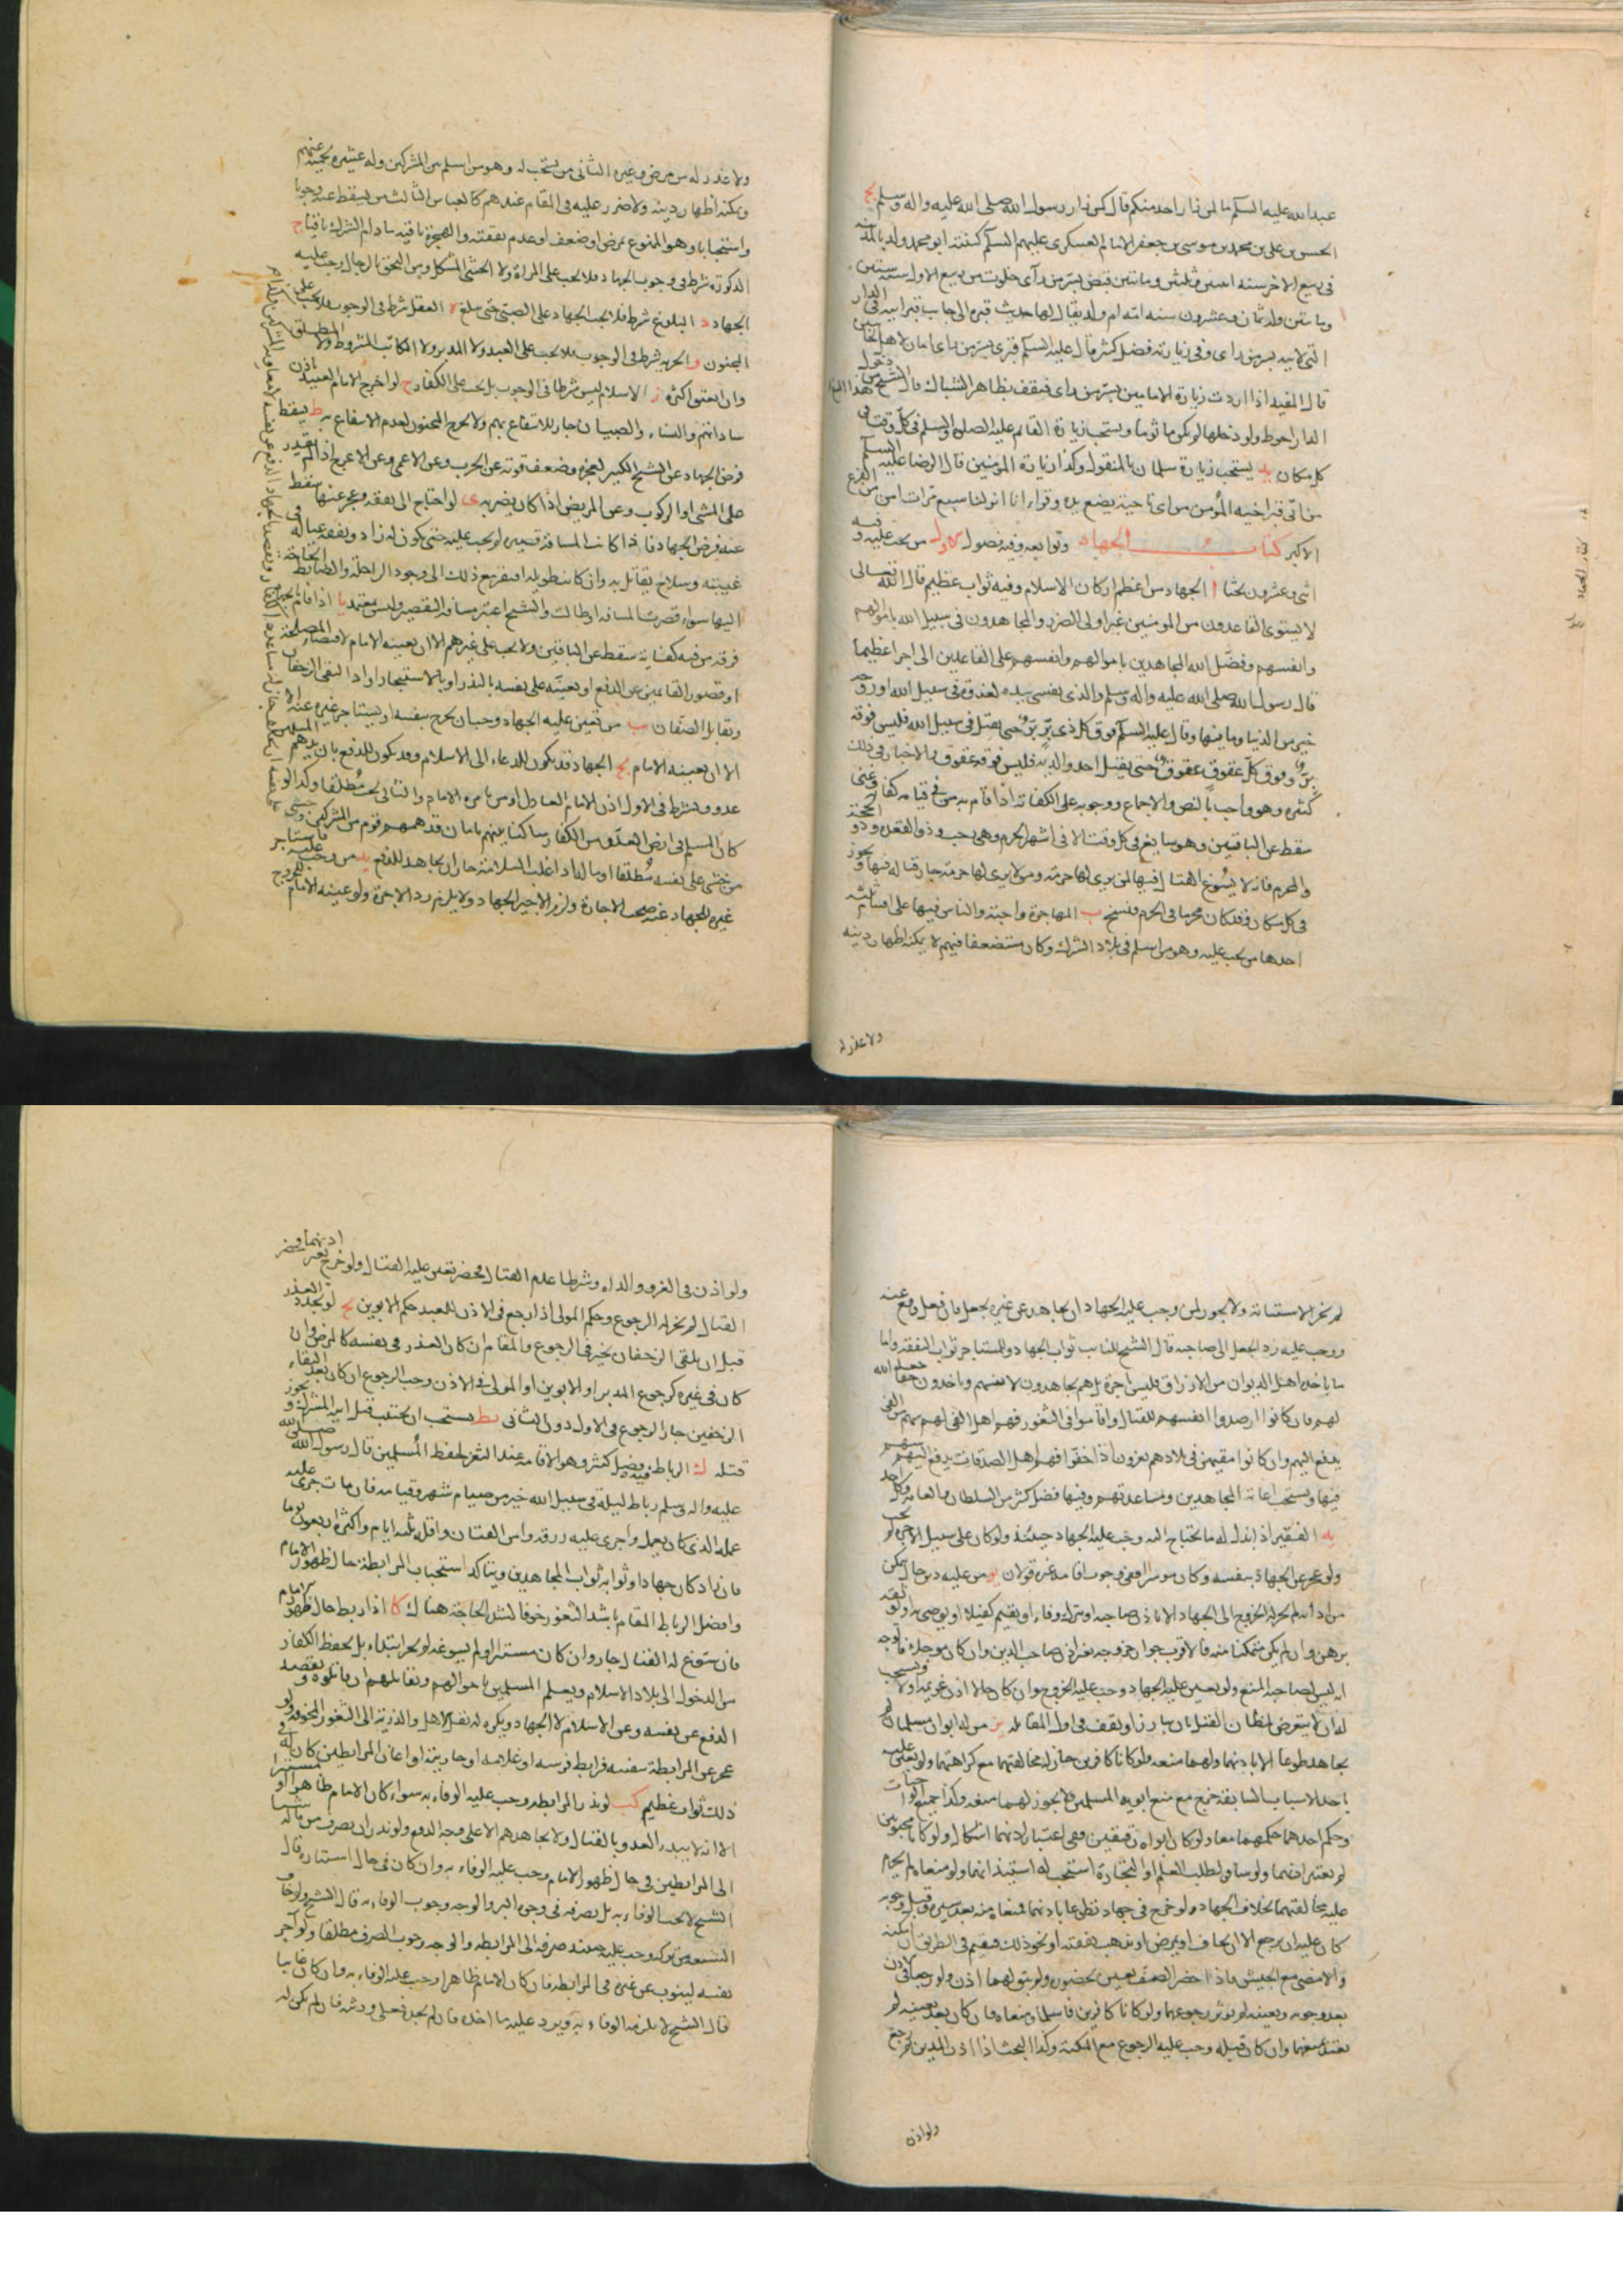 عبدالله عليه السلم ما لمن زار احد منكم قال كمن زار رسول الله صلى الله عليه واله وسلم يج
الحسن بن علي بن محمد بن موسى بن جعفر الامام العسكري عليهم السلم كنيته ابو محمد ولد بالمدينة
في ربيع الاخر سنة اثنين وثلثين ومائتين قبض بسر من رأى خلون من ربيع الاول سنة ستين
ومائتين وله ثمان وعشرون سنه امه ام ولد يقال لها حديث قبره الى جانب قبر ابيه في الدار
التي لابيه بسر من راى وفي زيارته فضل كثير قال عليه السلم قبري بسر من راى امان لاهل الجانبين
قال المفيد اذا اردت زيارة الامامين بسر من راى فيقف بظاهر الشباك قال الشيخ من دخول هذا
الدار احوط ولو دخلها لم يكن ماثوما ويستحب زيارة القائم عليه الصلوة والسلم في كل وقت وفي
كل مكان يد يستحب زيارة سلمان بالمنقول وكذا زيارة المؤمنين قال الرضا عليه السلم
من اتى قبر اخيه المؤمن من اي ناحية يضع يده وقراء انا انزلناه سبع مرات امن من الفزع
الاكبر كتاب الجهاد وتوابعه وفيه فصول الاول من يجب عليه وفيه
اثنى وعشرون بحثا ا الجهاد من اعظم اركان الاسلام وفيه ثواب عظيم قال الله تعالى
لا يستوى القاعدون من المومنين غير اولى الضرر والمجاهدون في سبيل الله باموالهم
وانفسهم وفضل الله المجاهدين باموالهم وانفسهم على القاعدين الى اجرا عظيما
قال رسول الله صلى الله عليه واله وسلم والذي نفسي بيده لغدوة في سبيل الله او روحة
خير من الدنيا وما فيها وقال عليه السلم فوق كل ذي بر بر حتى يقتل في سبيل الله فليس فوقه
بر وفوق كل عقوق عقوق حتى يقتل احد والديه فليس فوقه عقوق والاخبار في ذلك
كثيره وهو واجب بالنص والاجماع ووجوبه على الكفاية اذا قام به من في قيامه كفاية وغنى
سقط عن الباقين وهو سايغ في كل وقت الا في اشهر الحرم وهي رجب وذو القعده وذو الحجة
والمحرم فانه لا يسوغ القتال فيها لمن يرى لها حرمة ومن لا يرى لها حرمة جاز قتاله فيها ويجوز
في كل مكان وقد كان محرما في الحرم فنسخ ب المهاجرة واجبة والناس فيها على اقسام ثلثه
احدها من يجب عليه وهو من اسلم في بلاد الشرك وكان مستضعفا فيهم لا يمكنه اظهار دينه
ولا عذر له
ولا عذر له من مرض وغيره الثاني من يستحب له وهو من اسلم من المشركين وله عشيره تحميه عنهم
ويمكنه اظهار دينه ولا ضرر عليه في المقام عندهم كالعباس الثالث من يسقط عنه وجوبا
واستحبابا وهو الممنوع بمرض او ضعف او عدم نفقته والهجرة باقية مادام الشرك باقيا ج
الذكورة شرط في وجوب الجهاد فلا يجب على المراة ولا الخنثى المشكل ومن التحق بالرجال وجب عليه
الجهاد د البلوغ شرط فلا يجب الجهاد على الصبي حتى يبلغ ه العقل شرط في الوجوب فلا يجب على
المجنون و الحريه شرط في الوجوب فلا يجب على العبد ولا المدبر ولا المكاتب المشروط ولا المطلق
وان انعتق اكثره ز الاسلام ليس شرطا في الوجوب بل يجب على الكفار ح لو اخرج الامام العبيد باذن
ساداتهم والنساء والصبيان جاز للانتفاع بهم ولا يخرج المجنون لعدم الانتفاع به ط يسقط
فرض الجهاد عن الشيخ الكبير لعجزه وضعف قوته عن الحرب وعن الاعمى وعن الاعرج اذا لم يقدر
على المشي او الركوب وعن المريض اذا كان يضر به ى لو احتاج الى نفقه وعجز عنها سقط
عنه فرض الجهاد فاذا كانت المسافة قصيره لم يجب عليه حتى يكون له زاد ونفقه عياله في
غيبته وسلاح يقاتل به وان كانت طويله افتقر مع ذلك الى وجود الراحلة والضابط الحاجة
اليها سواء قصرت المسافه او طالت والشيخ اعتبر مسافة التقصير وليس بمعتمد يا اذا قام بالجهاد
فرقه من فيه كفاية سقط عن الباقين ولا يجب على غيرهم الا ان يعينه الامام لاقتضاء المصلحة
او قصور القائمين عن الدفع او يعينه على نفسه بالنذر او بالاستيجار او اذا التقى الزحفان
وتقابل الصفان يب من تعين عليه الجهاد وجب ان يخرج بنفسه او يستاجر غيره عنه
الا ان يعينه الامام يج الجهاد قد يكون للدعاء الى الاسلام وقد يكون للدفع بان يدهم المسلمين
عدو ويشترط في الاول اذن الامام العادل او من يامره الامام والثاني يجب مطلقا وكذا لو
كان المسلم في ارض العدو من الكفار ساكنا بينهم بامان فدهمهم قوم من المشركين وخشي
من خشي على نفسه مطلقا او ماله اذا غلب السلامة جاز ان يجاهد للدفع يد من وجب عليه فاستاجر
غيره للجهاد عنه صحت الاجارة ولزم الاجير الجهاد ولا يلزم رد الاجرة ولو عينه الامام للخروج
لم يجز الاستنابة ولا يجوز لمن وجب عليه الجهاد ان يجاهد عن غيره بجعل فان فعل وقع عنه
ووجب عليه رد الجعل الى صاحبه قال الشيخ للنايب ثواب الجهاد وللمستاجر ثواب النفقه واما
ما ياخذه اهل الديوان من الارزاق فليس اجرة بل هم يجاهدون لانفسهم وياخذون حقا جعله الله
لهم فان كانوا ارصدوا انفسهم للقتال واقاموا في الثغور فهم اهل الفيء لهم سهم من الفيء
يدفع اليهم وان كانوا مقيمين في بلادهم يغزون اذا خفوا فهم اهل الصدقات يدفع اليهم سهم
فيها ويستحب اعانة المجاهدين ومساعدتهم وفيها فضل كثير من السلطان والعامة وكل احد
يه الفقير اذا بذل له ما يحتاج اليه وجب عليه الجهاد حينئذ ولو كان على سبيل الاجرة لم يجب
ولو عجز عن الجهاد بنفسه وكان موسرا ففي وجوب اقامة غيره قولان يو من عليه دين حال يمكن
من ادائه لم يجز له الخروج الى الجهاد الا باذن صاحبه او يترك وفاء او يقيم كفيلا او يوصي به او يوثقه
برهن وان لم يكن متمكنا منه فالاقرب جواز خروجه بغير اذن صاحب الدين وان كان موجلا فالوجه
انه ليس لصاحبه المنع ولو تعين عليه الجهاد وجب عليه الخروج وان كان حالا اذن غريمه اولا ويستحب
له ان لا يتعرض لمظان القتل بان يبارز او يقف في اول المقاتله يز من له ابوان مسلمان لم
يجاهد تطوعا الا باذنهما ولهما منعه ولو كانا كافرين جاز له مخالفتهما مع كراهتهما ولو تعين عليه
باحد الاسباب السابقه خرج مع منع ابويه المسلمين فلا يجوز لهما منعه وكذا جميع الواجبات
وحكم احدهما حكمهما معا ولو كان ابواه رقيقين ففي اعتبار اذنهما اشكال ولو كانا مجنونين
لم يعتبر اذنهما ولو سافر لطلب العلم او التجارة استحب له استيذانهما ولو منعاه لم يحرم
عليه مخالفتهما بخلاف الجهاد ولو خرج في جهاد تطوعا باذنهما فمنعاه منه بعد سيره وقبل وجوبه
كان عليه ان يرجع الا ان يخاف او يمرض او يذهب نفقته او نحو ذلك فيقيم في الطريق ان امكنه
والا مضى مع الجيش فاذا احضر الصف تعين بحضوره ولم يبق لهما اذن ولو رجعا في الاذن
بعد وجوبه وتعينه لم يؤثر رجوعهما ولو كانا كافرين فاسلما ومنعاه فان كان بعد تعينه لم
يعتد بمنعهما وان كان قبله وجب عليه الرجوع مع المكنة وكذا البحث اذا اذن المدين ثم رجع
ولو اذن
ولو اذن في الغزو والداه وشرطا عدم القتال فحضر تعين عليه القتال ولو خرج بغير اذنهما وحضر
القتال لم يجز له الرجوع وحكم المولى اذا رجع في الاذن للعبد حكم الابوين يح لو تجدد العذر
قبل ان يلتقى الزحفان تخير في الرجوع والمقام ان كان العذر في نفسه كالمرض وان
كان في غيره كرجوع المدين او الابوين او المولى في الاذن وجب الرجوع ان كان بعد التقاء
الزحفين جاز الرجوع في الاول دون الثاني يط يستحب ان يجتنب قتل ابيه المشرك ويجوز
قتله ك الرباط فيه فضل كثير وهو الاقامة عند الثغر لحفظ المسلمين قال رسول الله صلى الله
عليه واله وسلم رباط ليلة في سبيل الله خير من صيام شهر وقيامه فان مات جرى عليه
عمله الذي كان يعمل واجرى عليه رزقه وامن الفتان واقله ثلثة ايام واكثره اربعون يوما
فان زاد كان جهادا وثوابه ثواب المجاهدين ويتاكد استحباب المرابطة حال ظهور الامام
وافضل الرباط المقام باشد الثغور خوفا لشدة الحاجة هناك كا اذا رابط حال ظهور الامام
فان سوغ له القتال جاز وان كان مستترا او لم يسوغه لم يجز ابتداء بل يحفظ الكفار
من الدخول الى بلاد الاسلام ويعلم المسلمين باحوالهم ويقاتلهم ان قاتلوه ويقصد
الدفع عن نفسه وعن الاسلام لا الجهاد ويكره له نقل الاهل والذرية الى الثغور المخوفة ولو
عجز عن المرابطة بنفسه فرابط فرسه او غلامه او جاريته او اعان المرابطين كان له في
ذلك ثواب عظيم كب لو نذر المرابطه وجب عليه الوفاء به سواء كان الامام ظاهرا او مستترا
الا انه لا يبدء العدو بالقتال ولا يجاهدهم الا على وجه الدفع ولو نذر ان يصرف من ماله شيئا
الى المرابطين في حال ظهور الامام وجب عليه الوفاء به وان كان في حال استتاره قال
الشيخ لا يجب الوفاء به بل يصرفه في وجوه البر والوجه وجوب الوفاء به قال الشيخ ولو خاف
الشنعه من تركه وجب عليه حينئذ صرفه الى المرابطه والوجه وجوب الصرف مطلقا ولو آجر
نفسه لينوب عن غيره في المرابطه فان كان الامام ظاهرا وجب عليه الوفاء به وان كان غايبا
قال الشيخ لا يلزمه الوفاء به ويرد عليه ما اخذه فان لم يجد فعلى ورثته فان لم يكن له